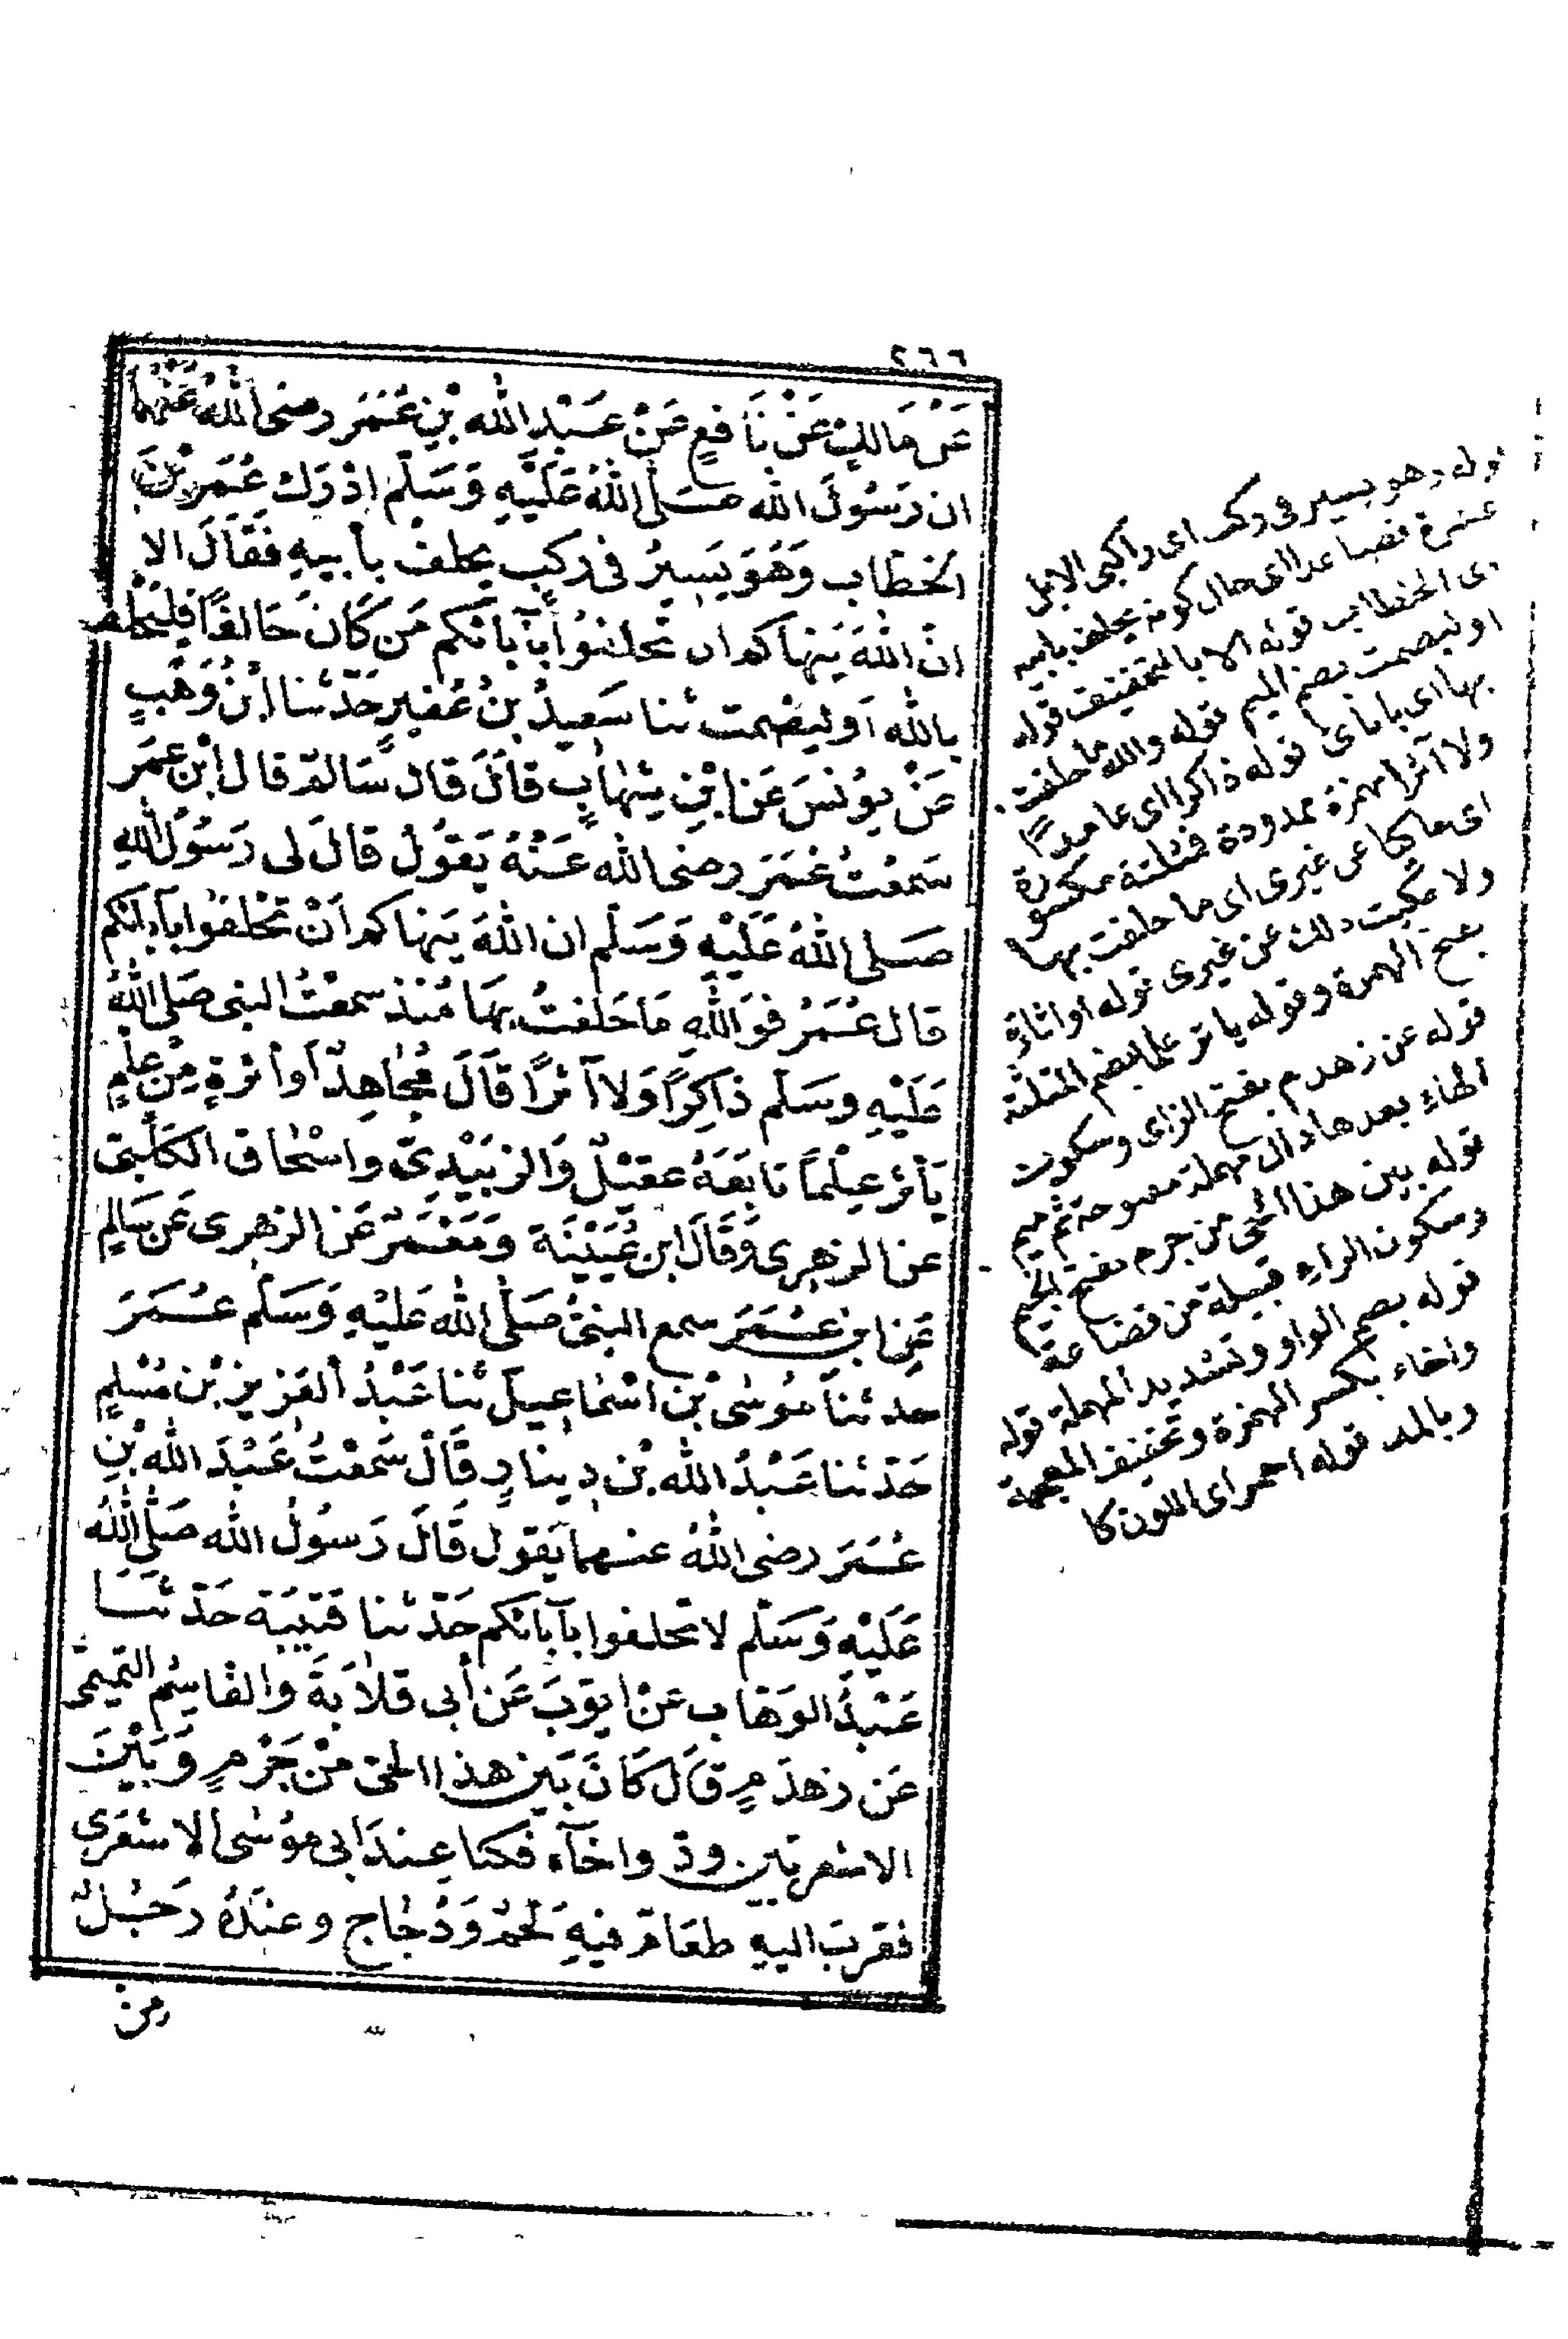 ٢٦٦
عَن مَالِك عَنْ نَافِعٍ عَنْ عَبْدِ الله بْنِ عُمَرَ رضى اللهُ عَنْهُمَا
ان رَسُولَ الله صَلَّى اللهُ عَلَيْهِ وَسَلَّم ادْرَك عُمَرَ بْنَ
الخطاب وَهُوَ يَسِيرُ فى ركب يحلف بأبيهِ فَقَالَ الا
انّ اللهَ يَنهاكم ان تحلفُوا بآبائكم مَن كَانَ حَالفًا فليَحْلف
بالله اَو ليصْمت ثنا سَعِيدُ بنُ عُفَيرٍ حَدّثنا ابْنُ وَهْبٍ
عَنْ يُونسَ عَنْ ابْنِ شِهَابٍ قالَ قال سَالم قال ابْن عمَر
سَمعْتُ عُمَرَ رضى الله عَنْهُ يَقولُ قالَ لى رَسُولُ اللهِ
صَلى اللهُ عَلَيْهِ وَسَلّم ان اللهَ يَنهاكم اَنْ تحْلفُوا بآبائكم
قال عُمَرُ فوَاللهِ مَا حَلفتُ بهَا مُنذ سمعْتُ النبى صَلى اللهُ
عَلَيْهِ وسَلّم ذَاكِرًا وَلا آثرًا قَالَ مُجَاهِدٌ اَوْ أثرةٍ مِنْ عِلْمٍ
يَأثرُ عِلْمًا تابَعَهُ عقيْلٌ وَالزبَيْدِىّ وَاسْحَاق الكَلْبىّ
عن الزهرى وَقَالَ ابن عُيَيْنَة وَمَعْمَرٌ عَن الزهرى عَن سَالِمٍ
عَن ابن عُمَرَ سمع النبىُّ صَلَّى الله عَلَيْهِ وَسَلّم عُمَرَ
حدثنا مُوسٰى بْن اسْمَاعِيلَ ثنا عَبْدُ العَزيز بْن مُسْلِمٍ
حَدّثنا عَبْدُ الله بْن دِينارٍ قَالَ سَمعْتُ عَبْدَ الله بْنِ
عُمَرَ رضى اللهُ عنهما يَقول قَالَ رَسُولُ الله صَلَّى اللهُ
عَلَيْهِ وَسَلّم لا تحلفوا بآبائكم حَدّثنا قتيبَة حَدّثنَا
عَبْدُ الوَهّاب عَنْ ايوّبَ عَن أبى قلابَةَ وَالقاسِم التميمى
عَن زهدَمٍ قَالَ كَانَ بَيْن هذا الحى منْ جَرْمٍ وَبَيْنَ
الاشعريّين ودّ واخَآء فكنا عِندَ ابى مُوسٰى الاشعَرى
فقرب اليهِ طعَام فيهِ لحْمُ دُجَاج وعندَهُ رَجُلٌ
من
قوله وهو يسير فى ركب اى راكبى الابل
عشرة فصاعدا اى حال كونه يحلف بابيه
اى الخطاب قوله الا بالتخفيف قوله
او ليصمت بضم الميم قوله والله ما حلفت
بها اى بابائى قوله ذاكرا اى عامدًا
ولا آثرا بهمزة ممدودة فمثلثة مكسورة
اى حاكيا عن غيرى اى ما حلفت بها
ولا حكيت ذلك عن غيرى قوله او اثارة
بفتح الهمزة وقوله ياثر علما بضم المثلثة
قوله عن زهدم بفتح الزاى وسكون
الهاء بعدها دال مهملة مفتوحة ثم ميم
قوله بين هذا الحى من جرم بفتح الجيم
وسكون الراء قبيلة من قضاعة
قوله بضم الواو وتشديد المهملة قوله
واخاء بكسر الهمزة وتخفيف المعجمة
وبالمد قوله احمر اى اللون كا